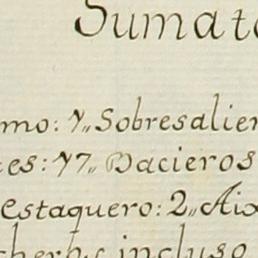 Sumato
mo: 7,, Sobresalien
es: 77,, Bacieros
estaquero: 2,, Aix
incluso